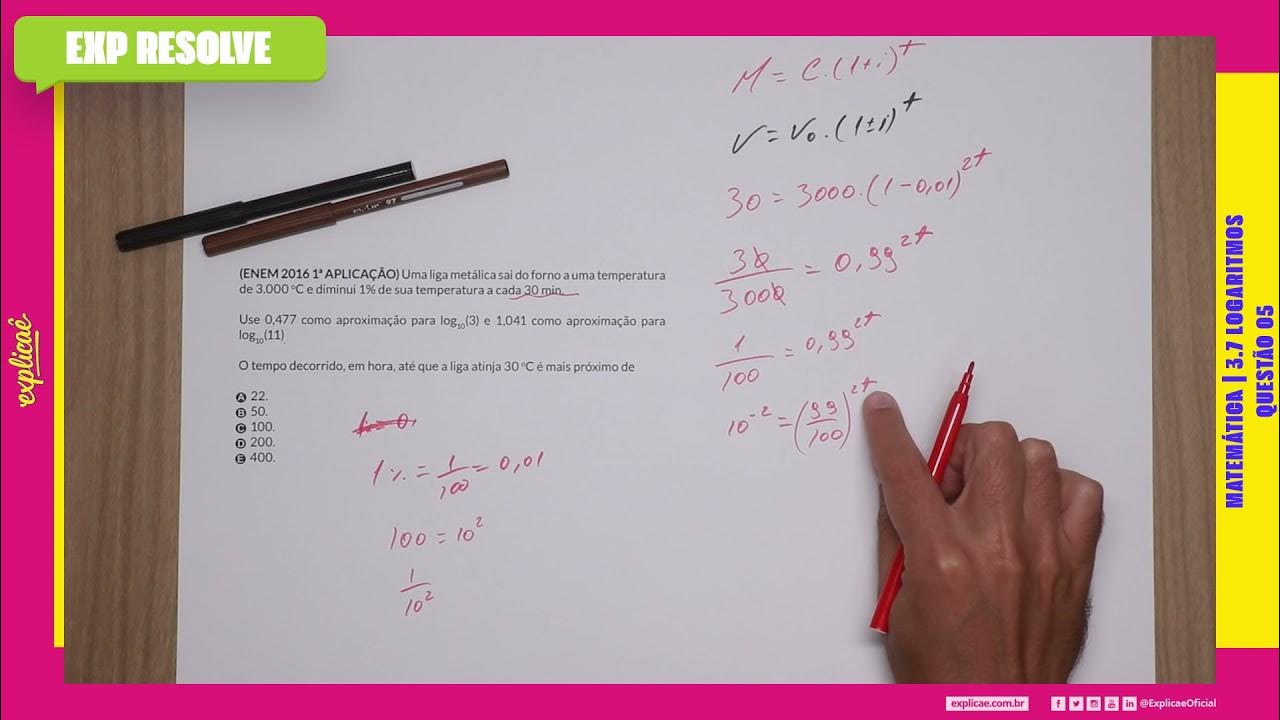 EXP RESOLVE
explicaê
(ENEM 2016 1ª APLICAÇÃO) Uma liga metálica sai do forno a uma temperatura
de 3.000 °C e diminui 1% de sua temperatura a cada 30 min.
Use 0,477 como aproximação para log₁₀(3) e 1,041 como aproximação para
log₁₀(11)
O tempo decorrido, em hora, até que a liga atinja 30 °C é mais próximo de
A 22.
B 50.
C 100.
D 200.
E 400.
1% = 1/100 = 0,01
100 = 10²
1/10²
M = C.(1+i)^t
V = V₀.(1±i)^t
30 = 3000.(1-0,01)^2t
30/3000 = 0,99^2t
1/100 = 0,99^2t
10⁻² = (99/100)^2t
MATEMÁTICA | 3.7 LOGARITMOS
QUESTÃO 05
explicae.com.br
@ExplicaeOficial